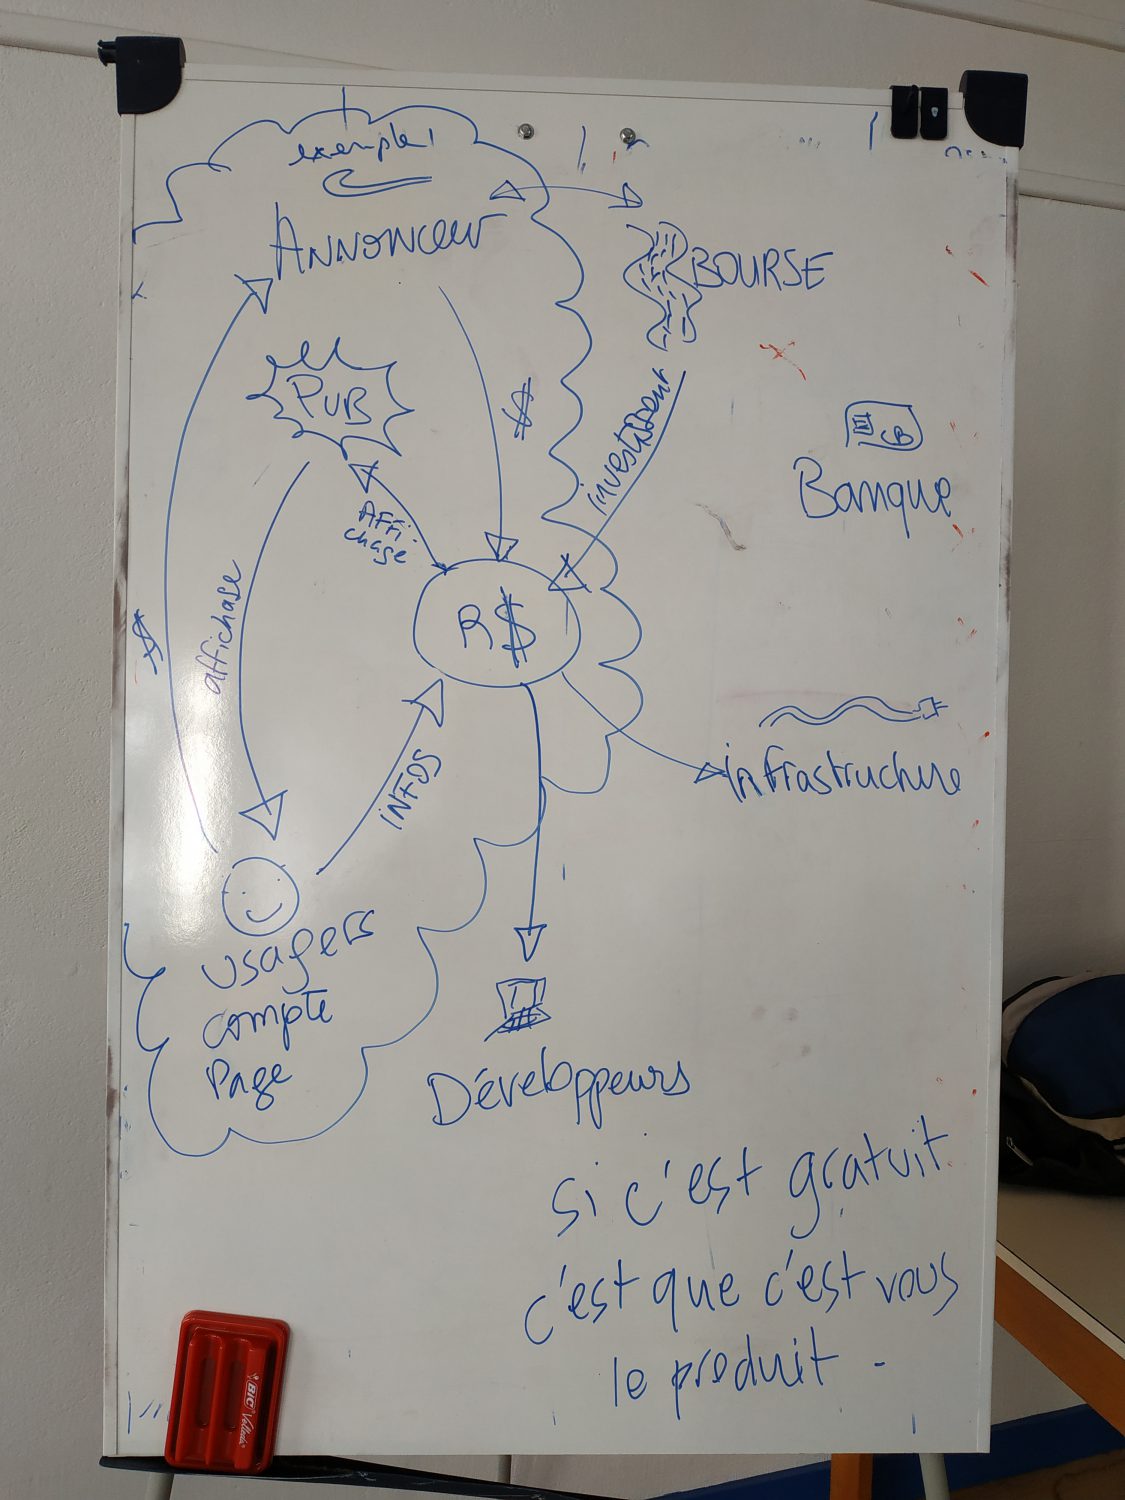 exemple 1
ANNONCEUR
BOURSE
PUB
$
investissent
CB
Banque
AFFI-
chage
R$
affichage
$
INFOS
infrastructure
usagers
compte
Page
Développeurs
si c'est gratuit
c'est que c'est vous
le produit -
BIC Velleda